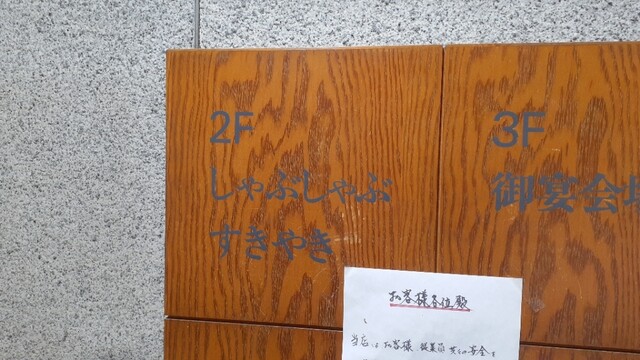 2F
しゃぶしゃぶ
すきやき
3F
御宴会場
お客様各位殿
当店はお客様 従業員 共に安全を